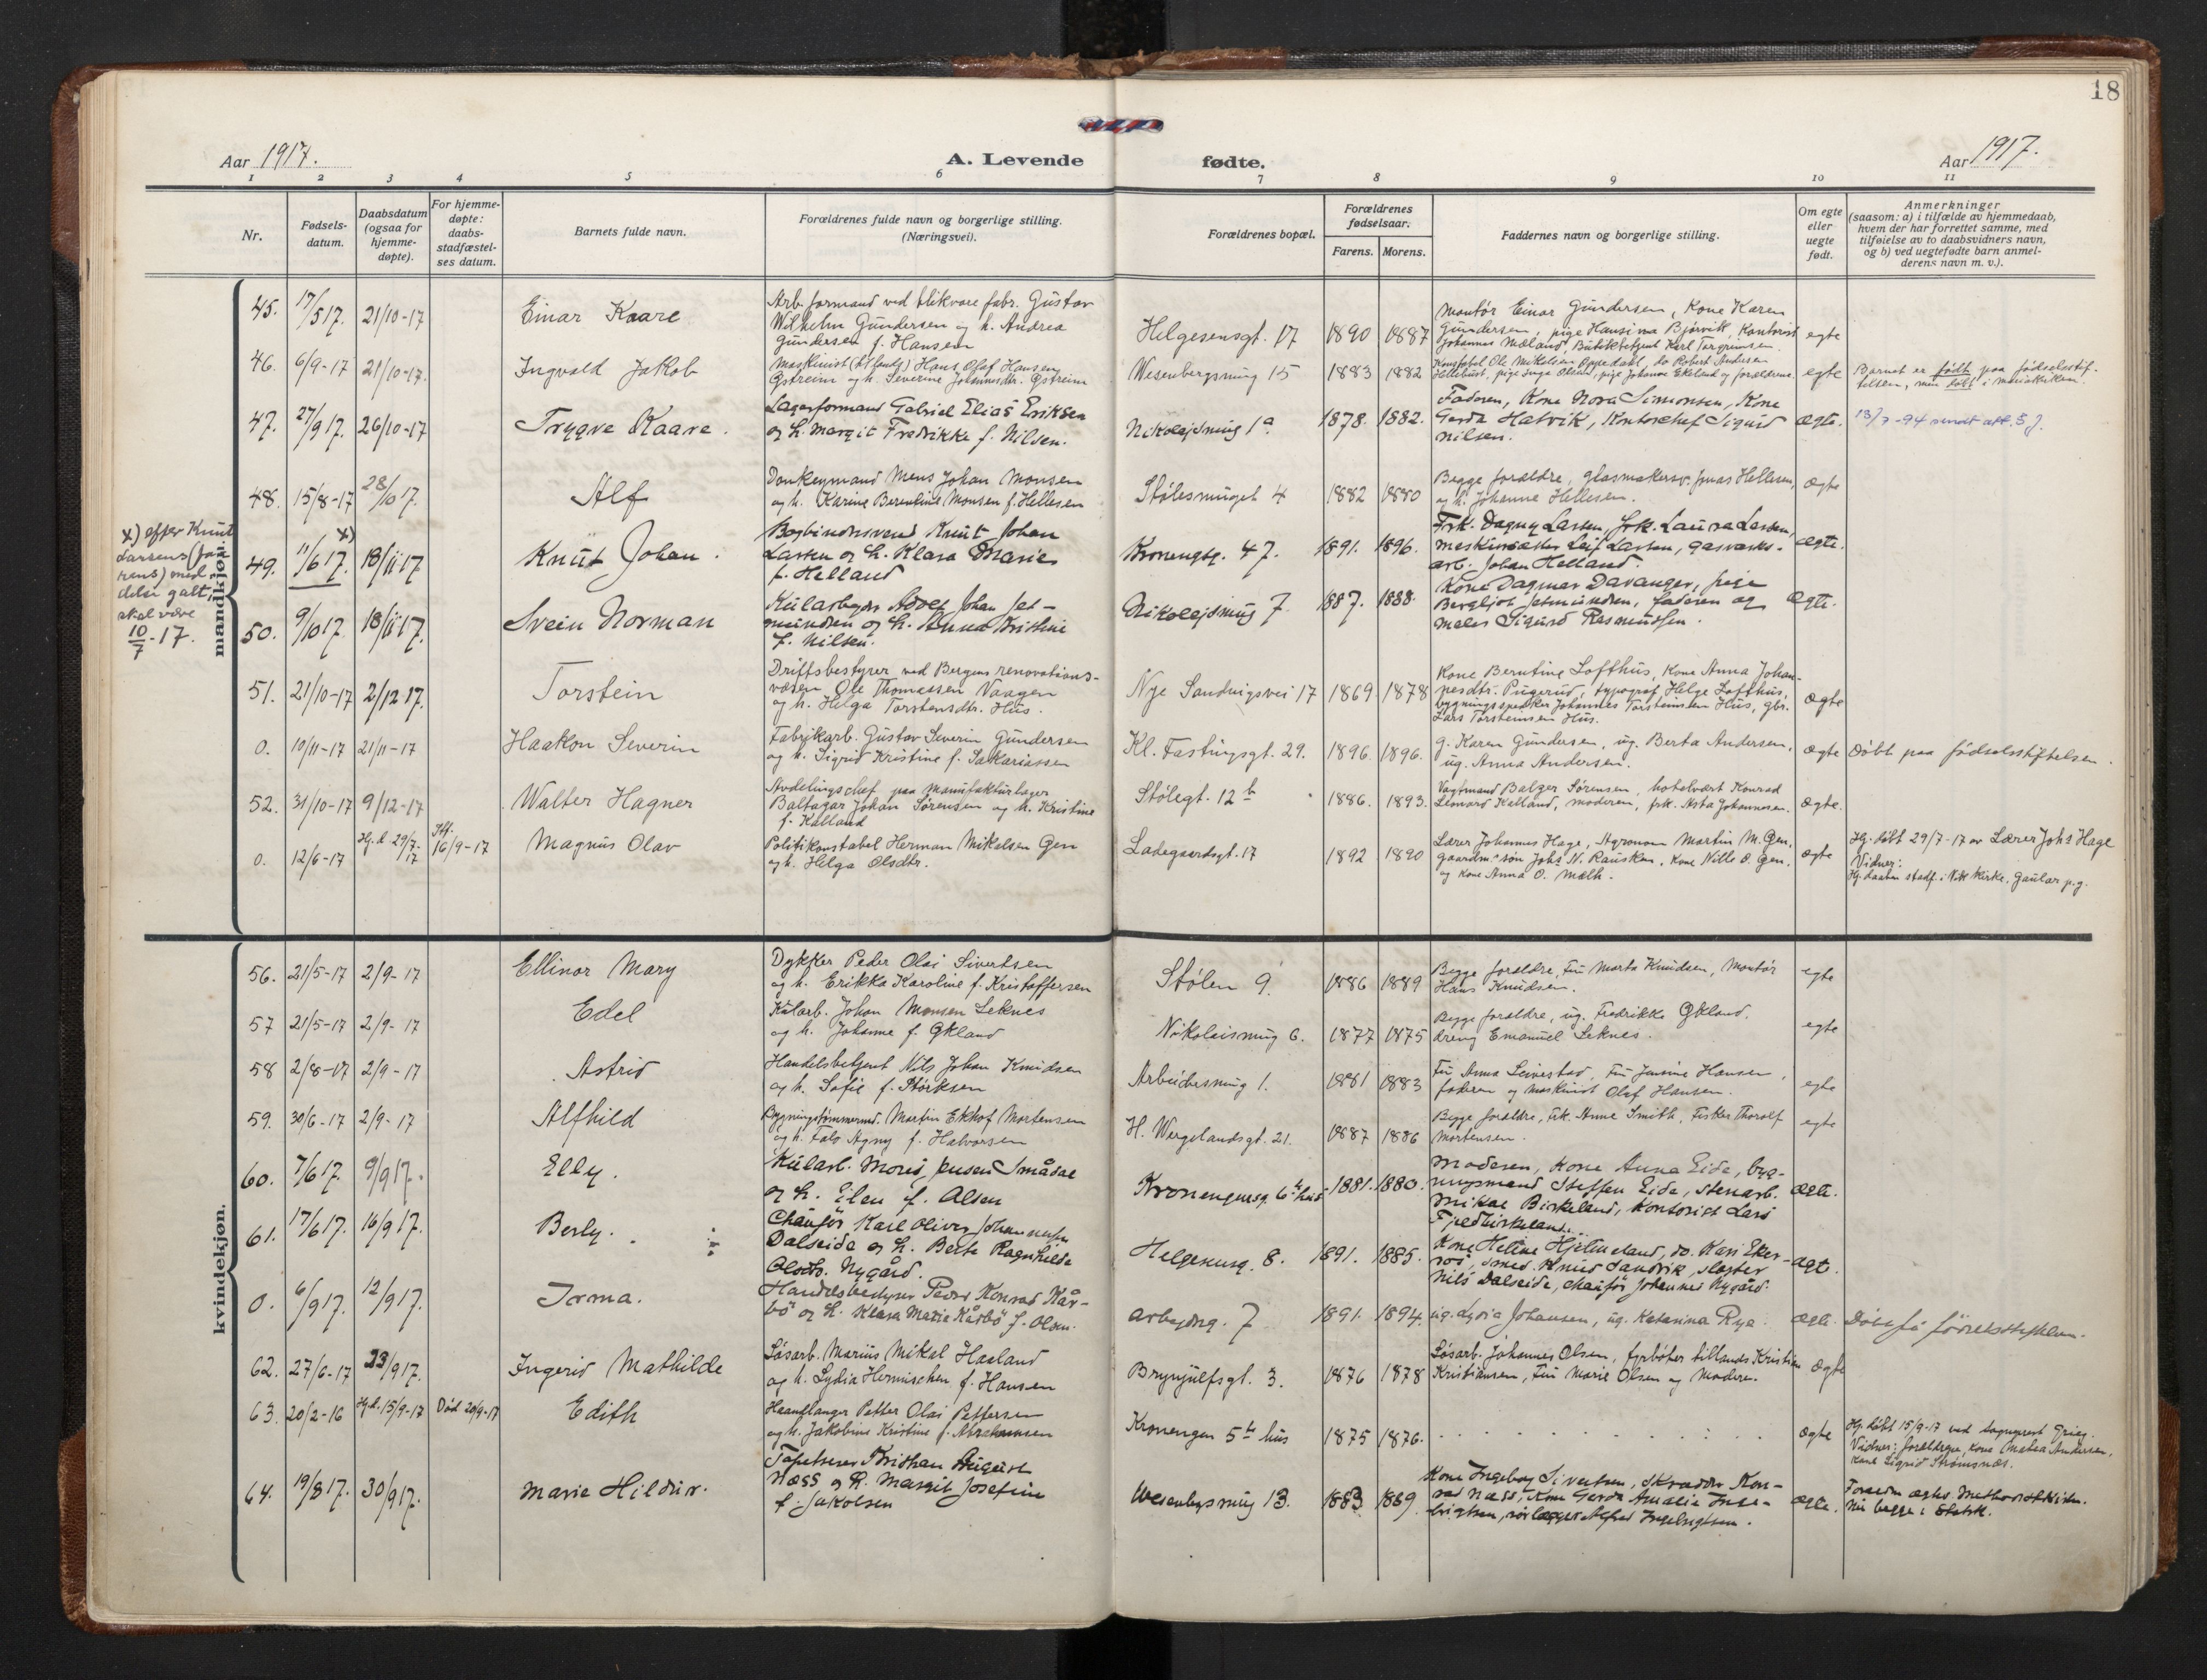 18
Aar 1917.
A. Levende
fødte.
Aar 1917.
1 2 3 4 5 6 7 8 9 10 11
Nr.
Fødsels-
datum.
Daabsdatum
(ogsaa for
hjemme-
døpte).
For hjemme-
døpte:
daabs-
stadfæstel-
ses datum.
Barnets fulde navn.
Forældrenes fulde navn og borgerlige stilling.
(Næringsvei).
Forældrenes bopæl.
Forældrenes
fødselsaar.
Farens. Morens.
Faddernes navn og borgerlige stilling.
Om egte
eller
uegte
født.
Anmerkninger
(saasom: a) i tilfælde av hjemmedaab,
hvem der har forrettet samme, med
tilføielse av to daabsvidners navn,
og b) ved uegtefødte barn anmel-
derens navn m. v.).
mandkjøn.
45. 17/5 17. 21/10-17 Einar Kaare
Arb. formand ved blikvare fabr. Gustav
Wilhelm Gundersen og h. Andrea
Gundersen f. Hansen
Helgesensgt. 17 1890 1887
Montør Einar Gundersen, Kone Karen
Gundersen, pige Hansina Bjørvik, Kontorist
Johannes Mæland, Butikbetjent Karl Torgrimsen.
egte
46. 6/9-17 21/10-17. Ingvald Jakob
Maskinist Hans Olaf Hansen
Gstreim og h. Severine Johannesdr. Gstreim
Wesenbergsmug 15 1883 1882
Konstabel Ole Mikelsen do Robert Andersen
Hellebust, pige Inga Olsen, pige Johanne Ekeland og forældrene.
egte
Barnet er født paa fødselsstif-
telsen, men døbt i Mariakirken.
47. 27/9 17. 26/10-17 Trygve Kaare.
Lagerformand Gabriel Elias Eriksen
og h. Margit Fredrikke f. Nilsen.
Nikolejsmug 1a 1878. 1882.
Faderen, Kone Nora Simonsen, Kone
Gerda Hatvik, Kontorchef Sigurd
Nilsen.
egte.
13/7-94 sendt att. 5 j.
48. 15/8-17 28/10 17. Alf
Donkeymand Mens Johan Monsen
og h. Karine Berentine Monsen f. Hellesen
Stølesmuget 4 1882 1880
Begge forældre, glasmakersv. Jonas Hellesen,
og h. Johanne Hellesen.
egte
x) efter Knut
Larsens (fa
rens) med
delse galt,
skal være
10/7-17.
49. 11/6 17. x) 18/11 17 Knut Johan.
Bogbindersvend Knut Johan
Larsen og h. Klara Marie
f. Helland
Kronengtg. 47. 1891. 1896.
Frk. Dagny Larsen, frk. Laura Larsen,
maskinsætter Leif Larsen, gasværks-
arb. Johan Helland.
egte.
50. 9/10 17. 18/11 17. Svein Norman
Kularbeyder Adolf Johan Jet-
mundsen og h. Anna Kristine
f. Nilsen.
Nikolejsmug 7. 1887. 1888.
Kone Dagmar Davanger, pige
Bergljot Jetmundsen, faderen og
maler Sigurd Rasmussen.
egte.
51. 21/10-17 2/12 17. Torstein
Driftsbestyrer ved Bergens renovations-
væsen Ole Thomassen Vaagen
og h. Helga Torstensdtr. Hus.
Nye Sandvigsvei 17 1869 1878
Kone Berntine Lofthus, Kone Anna Johan-
nesdtr. Pugerud, typograf Helge Lofthus,
bygningssnedker Johannes Torsteinsen Hus, gbr.
Lars Torsteinsen Hus.
egte
0. 10/11-17 21/11-17 Haakon Severin
Fabrikarb. Gustav Severin Gundersen
og h. Sigrid Kristine f. Sakariassen
Kl. Fastingsgt. 29. 1896. 1896.
g. Karen Gundersen, ug. Berta Andersen,
ug. Anna Andersen.
egte
Døbt paa fødselsstiftelsen.
52. 31/10-17 9/12-17 Walter Hagner
Avdelingschef paa Manufakturlager
Baltazar Johan Sørensen og h. Kristine
f. Kalland
Stølegt. 12b 1886. 1893.
Vagtmand Balzer Sørensen, hotelvært Konrad
Leonard Kalland, moderen, frk. Asta Johannesen.
egte.
0. 12/6-17 Hj. d. 29/7-17 Stf. 16/9-17 Magnus Olav
Politikonstabel Herman Mikelsen Gen
og h. Helga Olsdtr.
Ladegaardsgt. 17 1892 1890
Lærer Johannes Hage, Agronom Martin M. Gen,
gaardm. søn Johs N. Rausken, Kone Nille O. Gen,
og Kone Anna O. Mælh.
egte
Hj. døbt 29/7-17 av Lærer Johs Hage
Vidner:
Hj. daaben stadf. i Vik kirke. Gaular p.g.
kvindekjøn.
56. 21/5-17 2/9-17 Ellinor Mary
Dykker Peder Olai Sivertsen
og h. Erikka Karoline f. Kristoffersen
Stølen 9. 1886 1889
Begge forældre, Fru Marta Knudsen, Montør
Hans Knudsen.
egte
57 21/5-17 2/9-17 Edel
Kularb. Johan Monsen Leknes
og h. Johanne f. Økland
Nikolaismug 6. 1877 1875
Begge forældre, ug. Fredrikke Økland,
dreng Emanuel Leknes.
egte
58 2/8-17 2/9-17 Astrid
Handelsbetjent Nils Johan Knudsen
og h. Sofie f. Størksen
Arbeidersmug 1. 1881 1883
Fru Anna Leivestad, Fru Jensine Hansen,
faderen og maskinist Olaf Hansen.
egte
59. 30/6-17 2/9-17 Alfhild
Bygningstømmermd. Martin Ekhof Mortensen
og h. Tals Agny f. Halvorsen
H. Wergelandsgt. 21. 1887 1886
Begge forældre, Frk. Anne Smith, Fisker Thorolf
Mortensen.
egte
60. 7/6 17. 9/9 17. Elly.
Kularb. Mons Jensen Smådal
og h. Elen f. Olsen
Kronengensg. 6te hus 1881. 1880.
Moderen, Kone Anna Eide, byg-
ningsmand Steffen Eide, stenarb.
Mikal Birkeland, Kontorist Lars
Fjeldbirkeland.
egte.
61. 17/6 17. 16/9 17. Berly.
Chaufør Karl Oliver Johannessen
Dalseide og h. Berte Ragnhilda
Olsdtr. Nygård.
Helgesensg. 8. 1891. 1885.
Kone Heline Hjelmeland, do. Kari Eker-
, smed Knud Sandvik, slagter
Nils Dalseide, chaufør Johannes Nygård.
egte.
0. 6/9 17. 12/9 17. Irma.
Handelsbestyrer Peder Konrad Kår-
bø og h. Klara Marie Kårbø f. Olsen.
Arbeyderg. 7 1891. 1894.
ug. Lydia Johansen, ug. Katarina Rye.
egte.
Døbt på fødselsstiftelsen.
62. 27/6-17 23/9 17. Ingerid Mathilde
Løsarb. Marius Mikal Haaland
og h. Lydia Herminchen f. Hansen
Brynjulfsgt. 3. 1876 1878
Løsarb. Johannes Olsen, fyrbøter tillands Kristian
Kristiansen, Fru Marie Olsen og Moderen.
egte
63. 20/2-16 Hj. d. 15/9-17 Død 20/9-17 Edith
Haandlanger Petter Olai Pettersen
og h. Jakobine Kristine f. Abrahamsen
Kronengen 5te hus 1875 1876.
egte
Hj. døbt 15/9-17 ved sogneprest Grieg.
Vidner: forældrene, Kone Amalia Andersen,
Kone Sigrid Strømsnæs.
64. 19/8 17. 30/9 17. Marie Hildur.
Tapetserer Kristian August
Næss og h. Margit Josefine
f. Jakobsen
Wesenbergsmug 13. 1883 1889.
Kone Ingeborg Sivertsen, skrædder Kon-
rad Næss, Kone Gerda Amalie Inge-
brigtsen, rørlægger Alfred Ingebrigtsen.
egte.
Foreldre egtev. Methodistkirken.
Nu begge i Statsk.